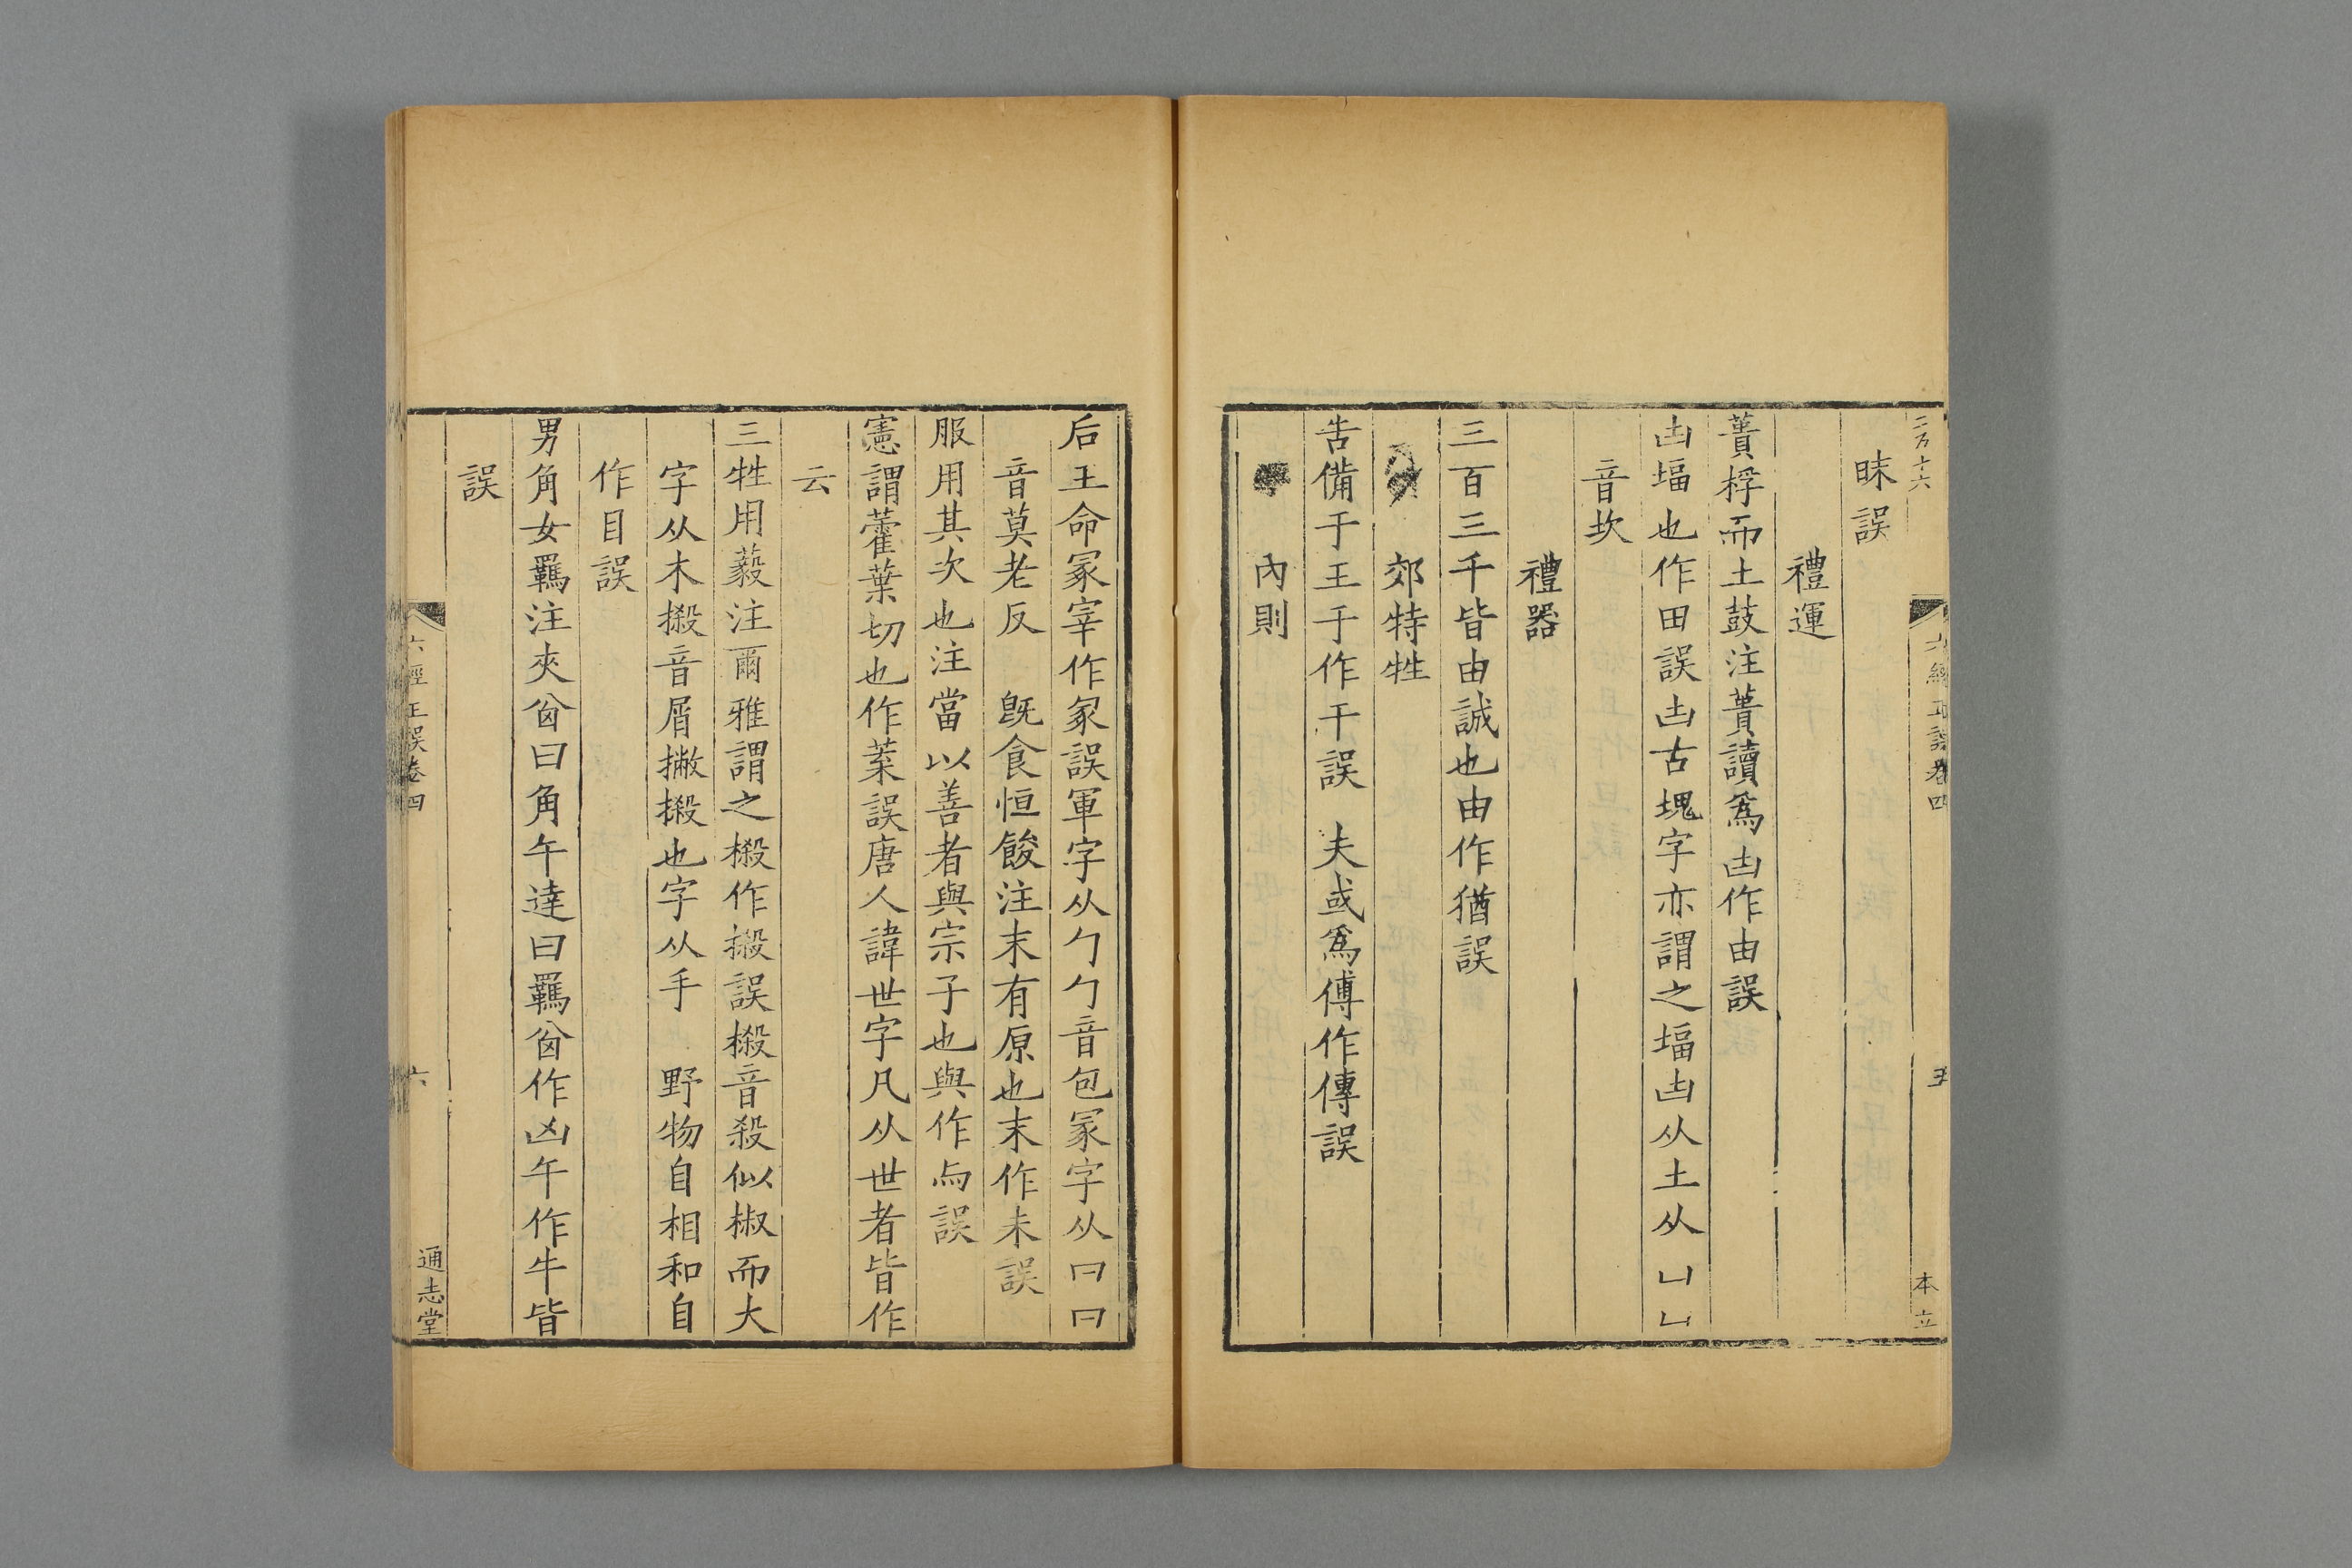 二百十六
六經正誤卷四
五
本立
昩誤
禮運
蕢桴而土鼓注蕢讀爲凷作由誤
凷堛也作田誤凷古塊字亦謂之堛凷从土从凵凵
音坎
禮器
三百三千皆由誠也由作猶誤
郊特牲
告備于王于作干誤 夫或爲傅作傳誤
內則
后王命冡宰作冢誤軍字从勹勹音包冡字从冃冃
音莫老反 旣食恒餕注末有原也末作未誤
服用其次也注當以善者與宗子也與作与誤
憲謂藿葉切也作䒶誤唐人諱世字凡从世者皆作
云
三牲用藙注爾雅謂之榝作摋誤榝音殺似椒而大
字从木摋音屑撇摋也字从手 野物自相和自
作目誤
男角女羈注夾囟曰角午達曰羈囟作凶午作牛皆
誤
六經正誤卷四
六
通志堂